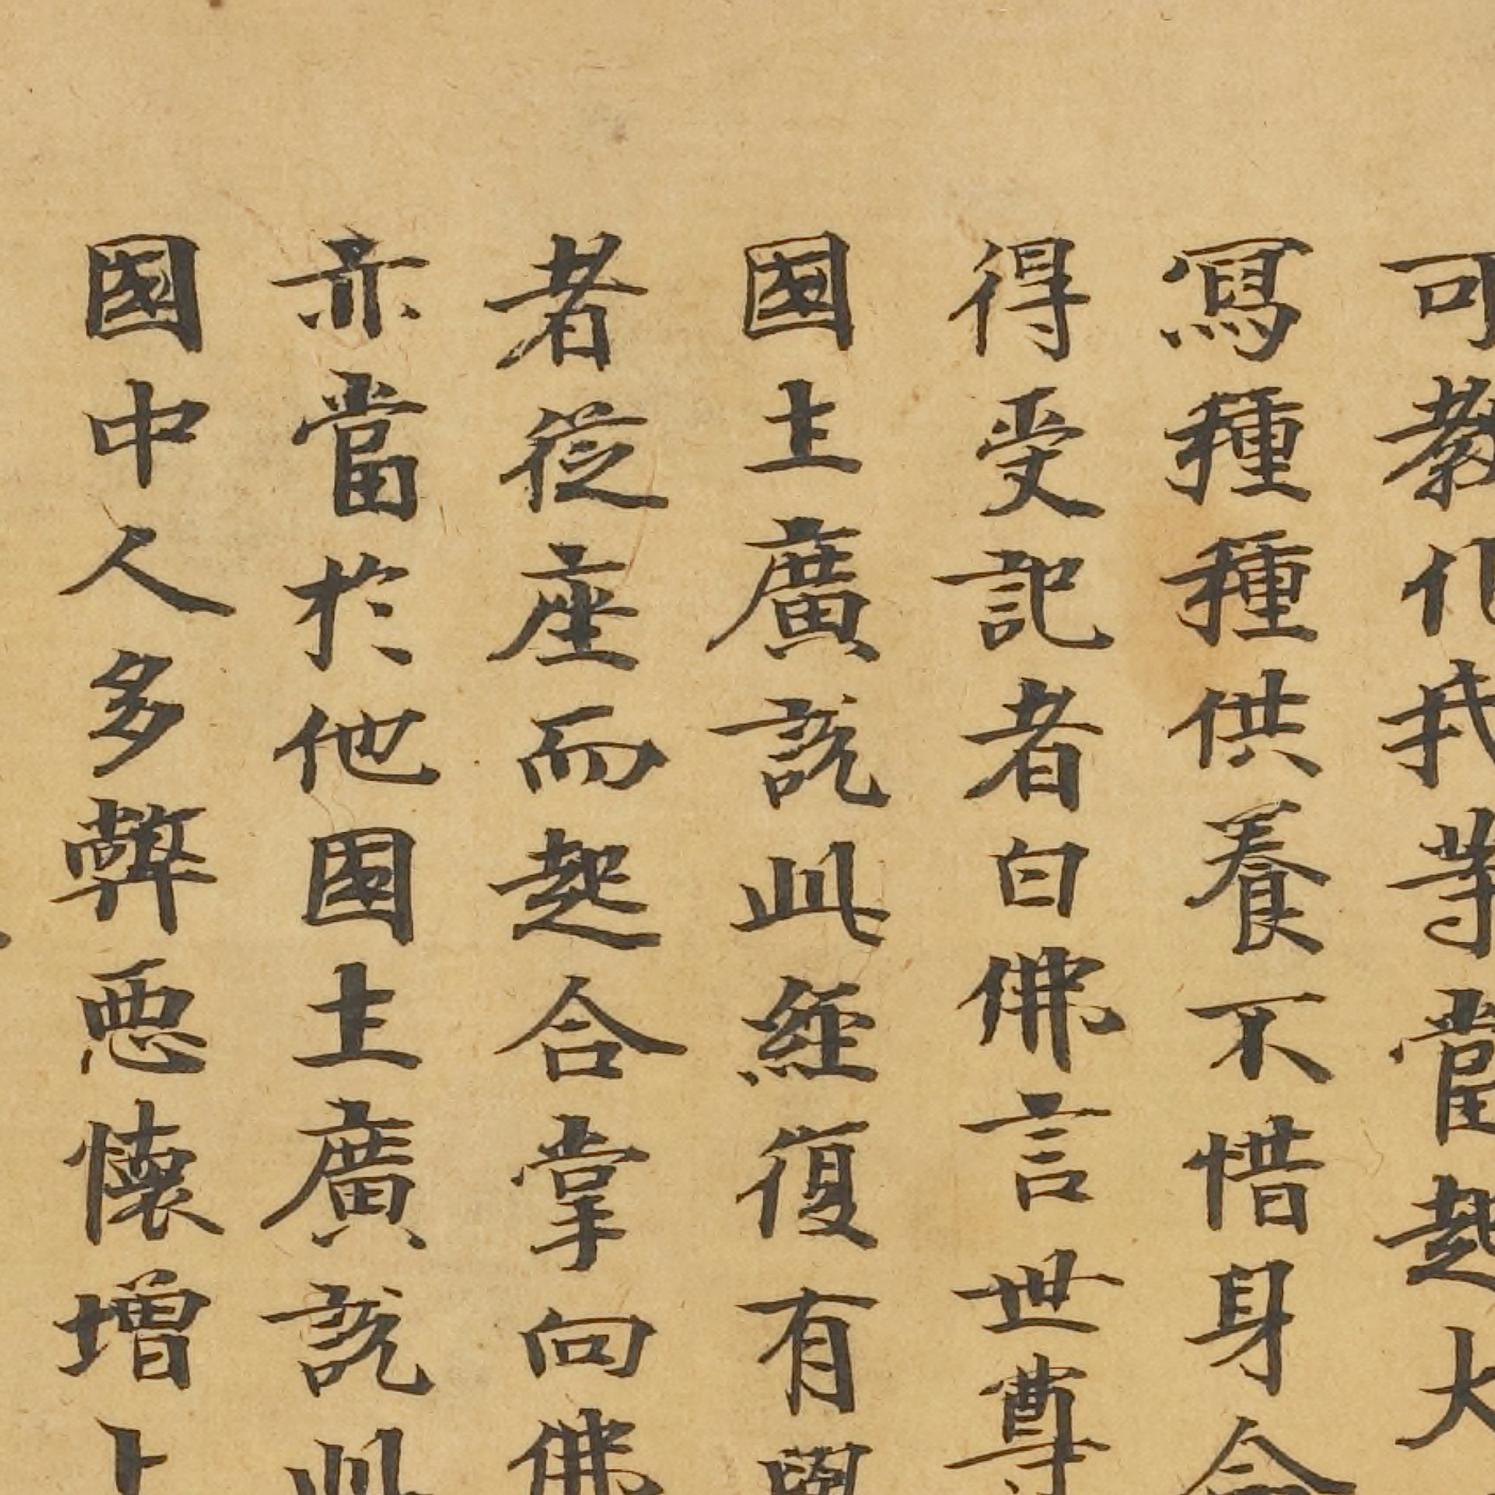 可教化我等當起大
寫種種供養不惜身命
得受記者白佛言世尊
國土廣說此經復有學
者從座而起合掌向佛
亦當於他國土廣說此
國中人多弊惡懷增上